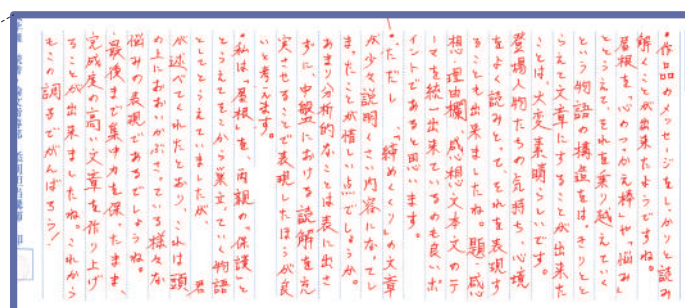 ・作品のメッセージをしっかりと読み
解くことが出来たようですね。
屋根を「心のつかえ棒」や「悩み」
ととらえて、それを乗り越えていく
という物語の構造を、はっきりとと
らえて文章にすることが出来た
ことは、大変素晴らしいです。
登場人物たちの気持ち、心境
をよく読みとって、それを表現す
ることも出来ましたね。題・感
想・理由欄、感想文本文のテ
ーマを統一出来ているのも良いポ
イントであると思います。
・ただし、「締めくくり」の文章
が少々説明くさい内容になってし
まったことが惜しい点でしょうか。
あまり分析的なことは表に出さ
ずに、中盤における読解を充
実させることで表現したほうが良
いと考えます。
・私は「屋根」を、両親の「保護」と
とらえてそこから巣立っていく物語
としてとらえていましたが、君
が述べてくれたとおり、これは頭
の上におおいかぶさっている様々な
悩みの表現であるでしょうね。
・最後まで集中力を保ったまま、
完成度の高い文章を作り上げ
ることが出来ましたね。これから
もこの調子でがんばろう！
添削担当講師 印